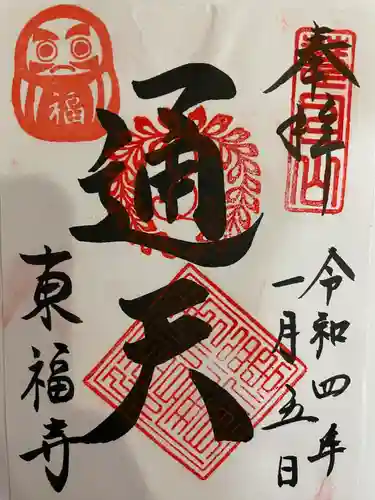 奉拝
令和四年
一月五日
通天
東福寺
福